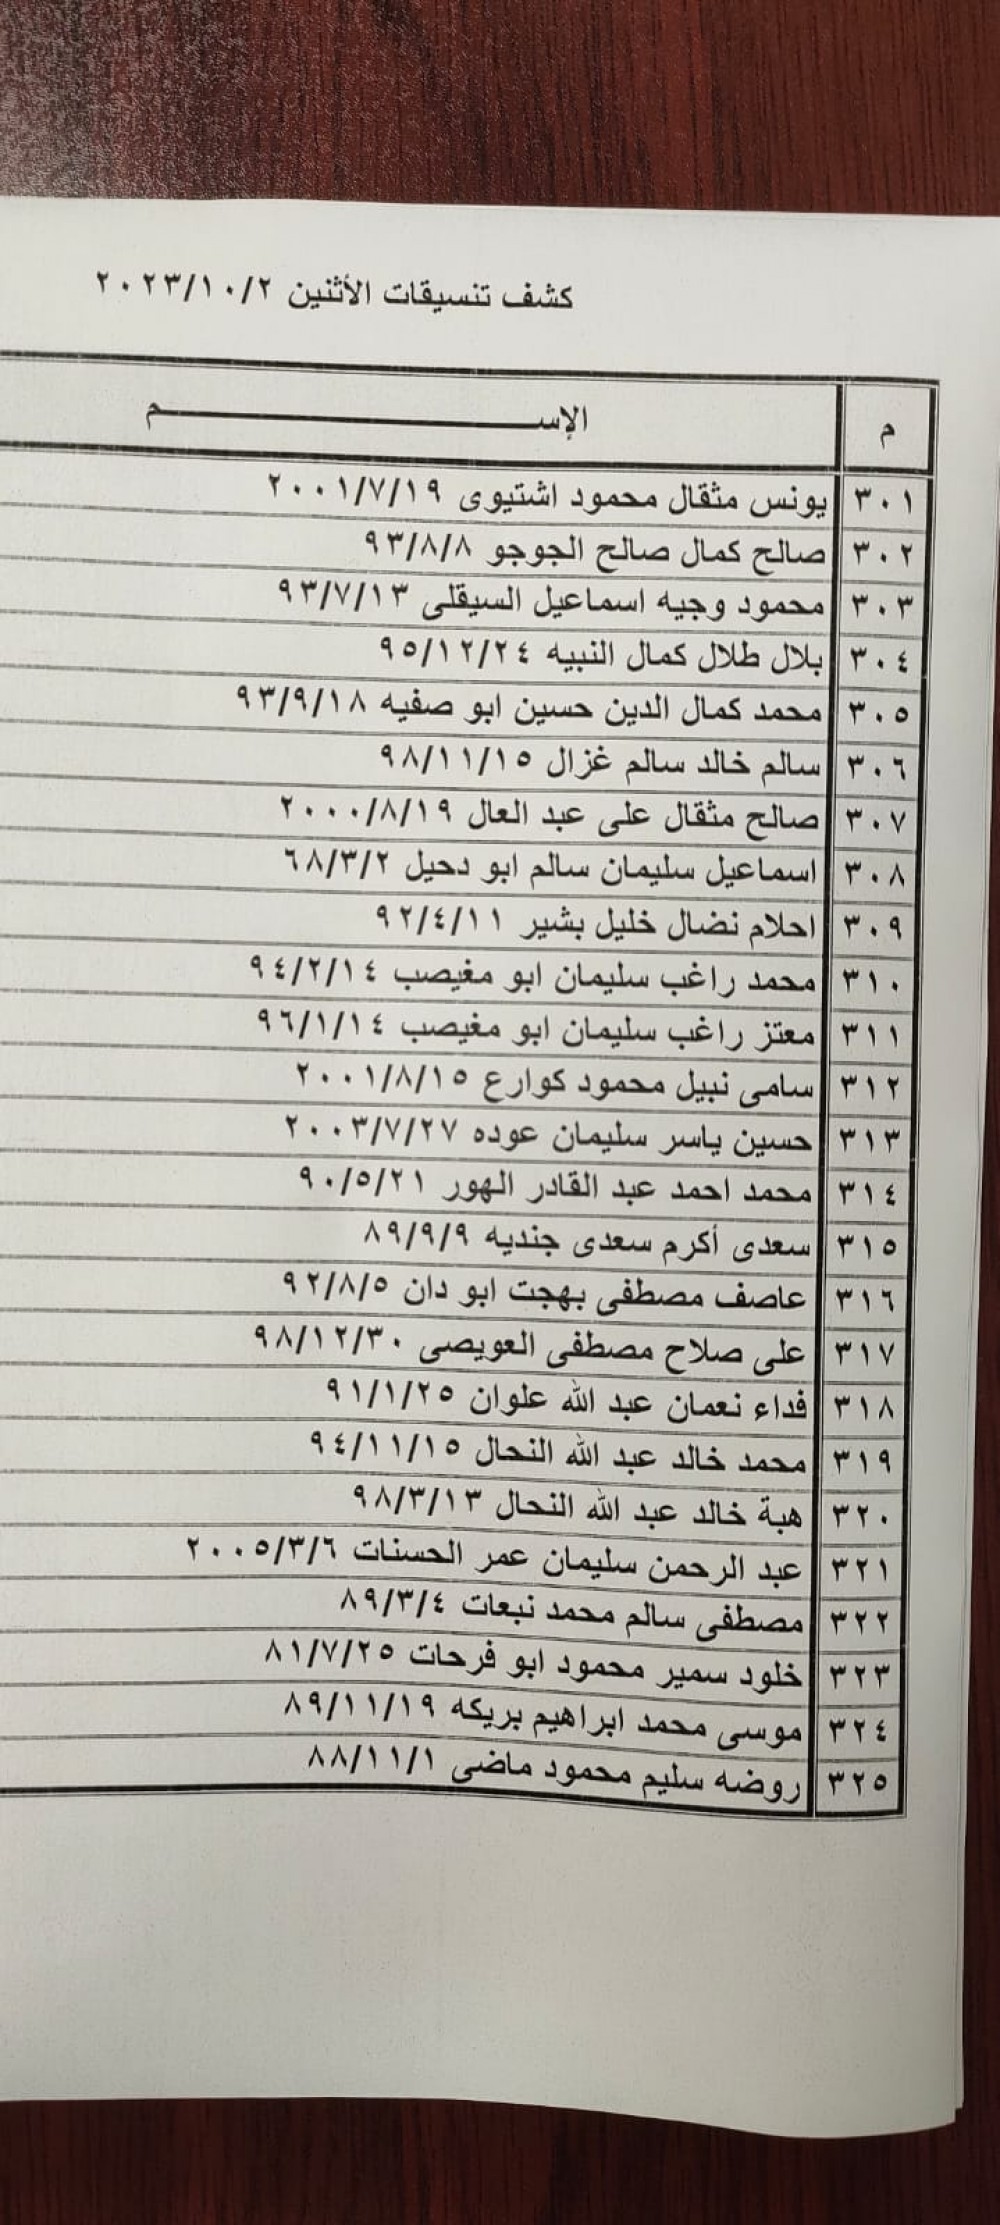 كشف تنسيقات الأثنين ٢٠٢٣/١٠/٢
م الإســـــم
٣٠١ يونس مثقال محمود اشتيوى ٢٠٠١/٧/١٩
٣٠٢ صالح كمال صالح الجوجو ٩٣/٨/٨
٣٠٣ محمود وجيه اسماعيل السيقلى ٩٣/٧/١٣
٣٠٤ بلال طلال كمال النبيه ٩٥/١٢/٢٤
٣٠٥ محمد كمال الدين حسين ابو صفيه ٩٣/٩/١٨
٣٠٦ سالم خالد سالم غزال ٩٨/١١/١٥
٣٠٧ صالح مثقال على عبد العال ٢٠٠٠/٨/١٩
٣٠٨ اسماعيل سليمان سالم ابو دحيل ٦٨/٣/٢
٣٠٩ احلام نضال خليل بشير ٩٢/٤/١١
٣١٠ محمد راغب سليمان ابو مغيصب ٩٤/٢/١٤
٣١١ معتز راغب سليمان ابو مغيصب ٩٦/١/١٤
٣١٢ سامى نبيل محمود كوارع ٢٠٠١/٨/١٥
٣١٣ حسين ياسر سليمان عوده ٢٠٠٣/٧/٢٧
٣١٤ محمد احمد عبد القادر الهور ٩٠/٥/٢١
٣١٥ سعدى أكرم سعدى جنديه ٨٩/٩/٩
٣١٦ عاصف مصطفى بهجت ابو دان ٩٢/٨/٥
٣١٧ على صلاح مصطفى العويصى ٩٨/١٢/٣٠
٣١٨ فداء نعمان عبد الله علوان ٩١/١/٢٥
٣١٩ محمد خالد عبد الله النحال ٩٤/١١/١٥
٣٢٠ هبة خالد عبد الله النحال ٩٨/٣/١٣
٣٢١ عبد الرحمن سليمان عمر الحسنات ٢٠٠٥/٣/٦
٣٢٢ مصطفى سالم محمد نبعات ٨٩/٣/٤
٣٢٣ خلود سمير محمود ابو فرحات ٨١/٧/٢٥
٣٢٤ موسى محمد ابراهيم بريكه ٨٩/١١/١٩
٣٢٥ روضه سليم محمود ماضى ٨٨/١١/١